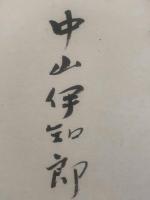 中山伊知郎